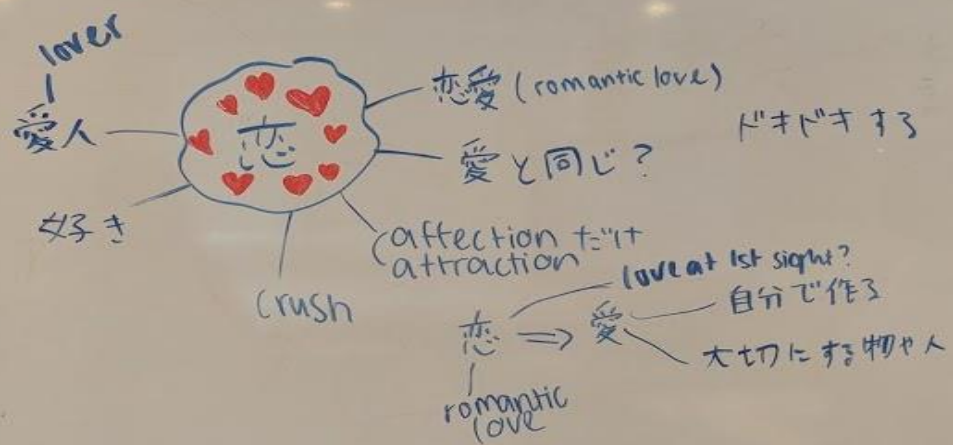 lover
愛人
好き
恋
恋愛 (romantic love)
愛と同じ?
ドキドキする
affection だけ
attraction
crush
love at 1st sight?
恋 ⇒ 愛
自分で作る
大切にする物や人
romantic
love